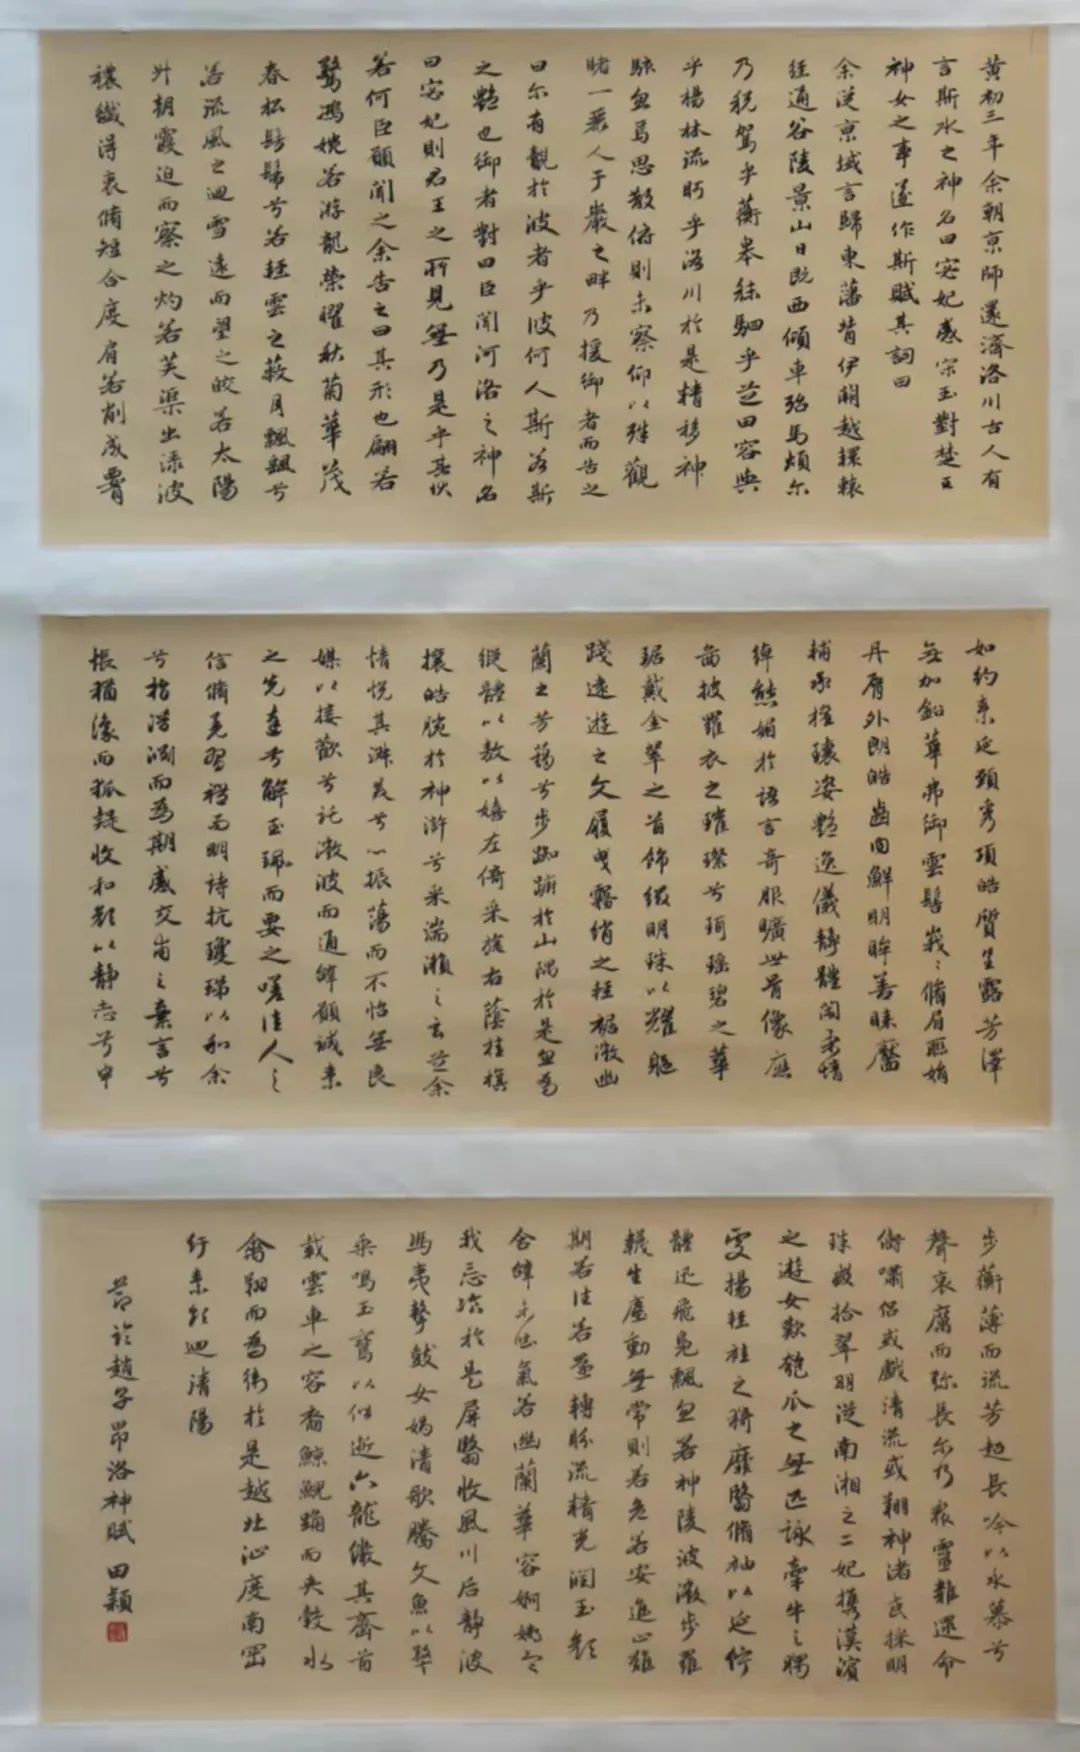 黃初三年余朝京師還濟洛川古人有
言斯水之神名曰宓妃感宋玉對楚王
神女之事遂作斯賦其詞曰
余從京域言歸東藩背伊闕越轘轅
經通谷陵景山日既西傾車殆馬煩尔
乃稅駕乎蘅皋秣駟乎芝田容與
乎楊林流眄乎洛川於是精移神
駭忽焉思散俯則未察仰以殊觀
睹一麗人于巖之畔乃援御者而告之
曰尔有覿於彼者乎彼何人斯若斯
之艷也御者對曰臣聞河洛之神名
曰宓妃則君王之所見無乃是乎其狀
若何臣願聞之余告之曰其形也翩若
驚鴻婉若游龍榮曜秋菊華茂
春松髣髴兮若輕雲之蔽月飄颻兮
若流風之迴雪遠而望之皎若太陽
升朝霞迫而察之灼若芙渠出淥波
襛纖得衷脩短合度肩若削成腰
如約素延頸秀項皓質呈露芳澤
無加鉛華弗御雲髻峩〻脩眉聯娟
丹脣外朗皓齒內鮮明眸善睞靨
輔承權瓌姿艷逸儀靜體閑柔情
綽態媚於語言奇服曠世骨像應
圖披羅衣之璀璨兮珥瑤碧之華
琚戴金翠之首飾綴明珠以耀軀
踐遠遊之文履曳霧綃之輕裾微幽
蘭之芳藹兮步踟躕於山隅於是忽焉
縱體以敖以嬉左倚采旄右蔭桂旗
攘皓腕於神滸兮采湍瀨之玄芝余
情悅其淑美兮心振蕩而不怡無良
媒以接歡兮託微波而通辭願誠素
之先達兮解玉珮而要之嗟佳人之
信脩羌習禮而明詩抗瓊珶以和余
兮指潛淵而為期感交甫之棄言兮
悵猶豫而狐疑收和顏以靜志兮申
步蘅薄而流芳超長吟以永慕兮
聲哀厲而弥長尔乃眾靈雜遝命
儔嘯侶或戲清流或翔神渚或採明
珠或拾翠羽從南湘之二妃攜漢濱
之遊女歎匏瓜之無匹詠牽牛之獨
處揚輕袿之猗靡翳脩袖以延佇
體迅飛鳧飄忽若神陵波微步羅
襪生塵動無常則若危若安進止難
期若往若還轉盼流精光潤玉顏
含辭未吐氣若幽蘭華容婀娜令
我忘飡於是屏翳收風川后靜波
馮夷擊鼓女媧清歌騰文魚以警
乘鳴玉鸞以偕逝六龍儼其齊首
載雲車之容裔鯨鯢踊而夾轂水
禽翔而為衛於是越北沚度南岡
紆素領迴清陽
節臨趙子昂洛神賦 田穎